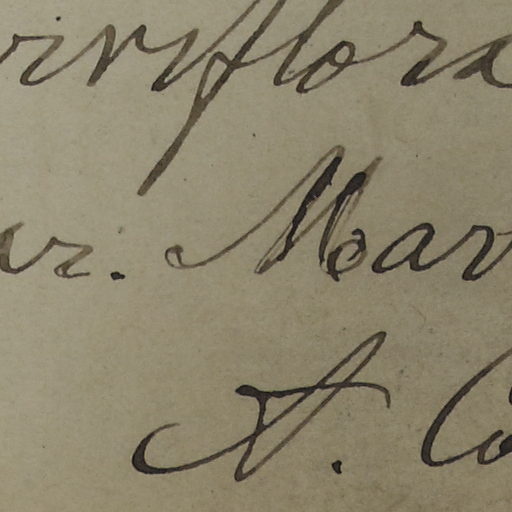 rviflora
ur. Mar
A. Co